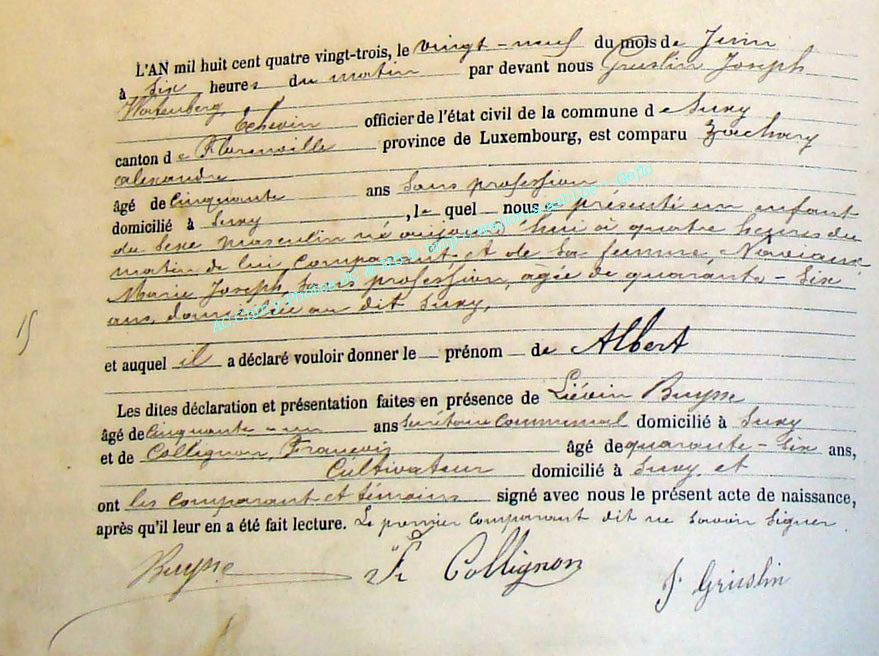 L'AN mil huit cent quatre vingt-trois, le vingt-neuf du mois de Juin
à six heures du matin par devant nous Gruslin Joseph
Échevin officier de l'état civil de la commune de Suxy
canton de Florenville province de Luxembourg, est comparu Zachary
Alexandre
âgé de Cinquante ans Sans profession
domicilié à Suxy, le quel nous a présenté un enfant
du sexe masculin né aujourd'hui à quatre heures du
matin de lui comparant et de sa femme,
Marie Joseph, sans profession, agée de quarante-six
ans, domiciliée au dit Suxy,
15
et auquel il a déclaré vouloir donner le prénom de Albert
Les dites déclaration et présentation faites en présence de Liévin Buysse
âgé de cinquante-un ans secrétaire communal domicilié à Suxy
et de Collignon, François âgé de quarante-six ans,
Cultivateur domicilié à Suxy et
ont les comparant et témoins signé avec nous le présent acte de naissance,
après qu'il leur en a été fait lecture. Le premier comparant dit ne savoir signer.
Buysse Fr Collignon J. Gruslin